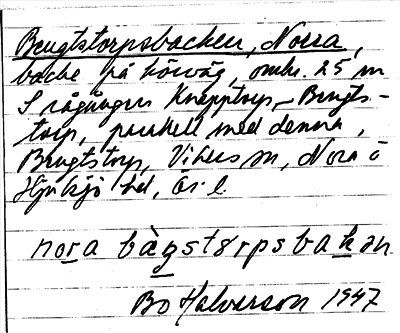 Bengtstorpsbacken, Norra,
backe på körväg, omkr. 25 m
S rågången Knapptorp - Bengts-
torp, parallell med denna,
Bengtstorp, Vikers sn, Nora o
Hjulsjö bd, Ör. l.
nora bàŋstorpsbakən
Bo Halvarson 1947